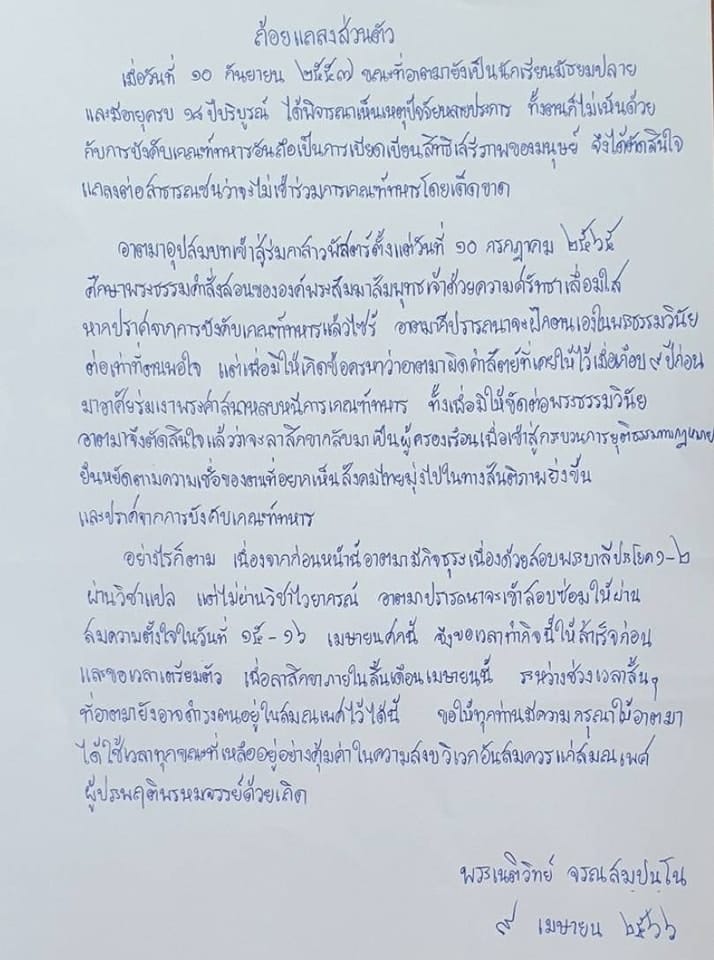 ถ้อยแถลงส่วนตัว
เมื่อวันที่ ๑๐ กันยายน ๒๕๕๗ ขณะที่อาตมายังเป็นนักเรียนมัธยมปลาย
และมีอายุครบ ๑๘ ปีบริบูรณ์ ได้พิจารณาเห็นเหตุปัจจัยหลายประการ ทั้งตนก็ไม่เห็นด้วย
กับการบังคับเกณฑ์ทหารอันถือเป็นการเบียดเบียนสิทธิเสรีภาพของมนุษย์ จึงได้ตัดสินใจ
แถลงต่อสาธารณชนว่าจะไม่เข้าร่วมการเกณฑ์ทหารโดยเด็ดขาด
อาตมาอุปสมบทเข้าสู่ร่มกาสาวพัสตร์ตั้งแต่วันที่ ๑๐ กรกฎาคม ๒๕๖๕
ศึกษาพระธรรมคำสั่งสอนขององค์พระสัมมาสัมพุทธเจ้าด้วยความศรัทธาเลื่อมใส
หากปราศจากการบังคับเกณฑ์ทหารแล้วไซร้ อาตมาก็ปรารถนาจะฝึกตนเองในพระธรรมวินัย
ต่อเท่าที่ตนพอใจ แต่เพื่อมิให้เกิดข้อครหาว่าอาตมาผิดคำสัตย์ที่เคยให้ไว้เมื่อเกือบ ๙ ปีก่อน
มาอาศัยร่มเงาพระศาสนาหลบหนีการเกณฑ์ทหาร ทั้งเพื่อมิให้ขัดต่อพระธรรมวินัย
อาตมาจึงตัดสินใจแล้วว่าจะลาสิกขากลับมาเป็นผู้ครองเรือนเพื่อเข้าสู่กระบวนการยุติธรรมทางกฎหมาย
ยืนหยัดตามความเชื่อของตนที่อยากเห็นสังคมไทยมุ่งไปในทางสันติภาพยิ่งขึ้น
และปราศจากการบังคับเกณฑ์ทหาร
อย่างไรก็ตาม เนื่องจากก่อนหน้านี้อาตมามีกิจธุระเนื่องด้วยสอบพระบาลีประโยค๑-๒
ผ่านวิชาแปล แต่ไม่ผ่านวิชาไวยากรณ์ อาตมาปรารถนาจะเข้าสอบซ่อมให้ผ่าน
สมความตั้งใจในวันที่ ๑๕-๑๖ เมษายนศกนี้ จึงขอเวลาทำกิจนี้ให้สำเร็จก่อน
และขอเวลาเตรียมตัว เพื่อลาสิกขาภายในสิ้นเดือนเมษายนนี้ ระหว่างช่วงเวลาสั้นๆ
ที่อาตมายังอาจดำรงตนอยู่ในสมณเพศไว้ได้นี้ ขอให้ทุกท่านมีความกรุณาให้อาตมา
ได้ใช้เวลาทุกขณะที่เหลืออยู่อย่างคุ้มค่าในความสงบวิเวกอันสมควรแก่สมณเพศ
ผู้ประพฤติพรหมจรรย์ด้วยเถิด
พระเนติวิทย์ จรณสมฺปนฺโน
๙ เมษายน ๒๕๖๖